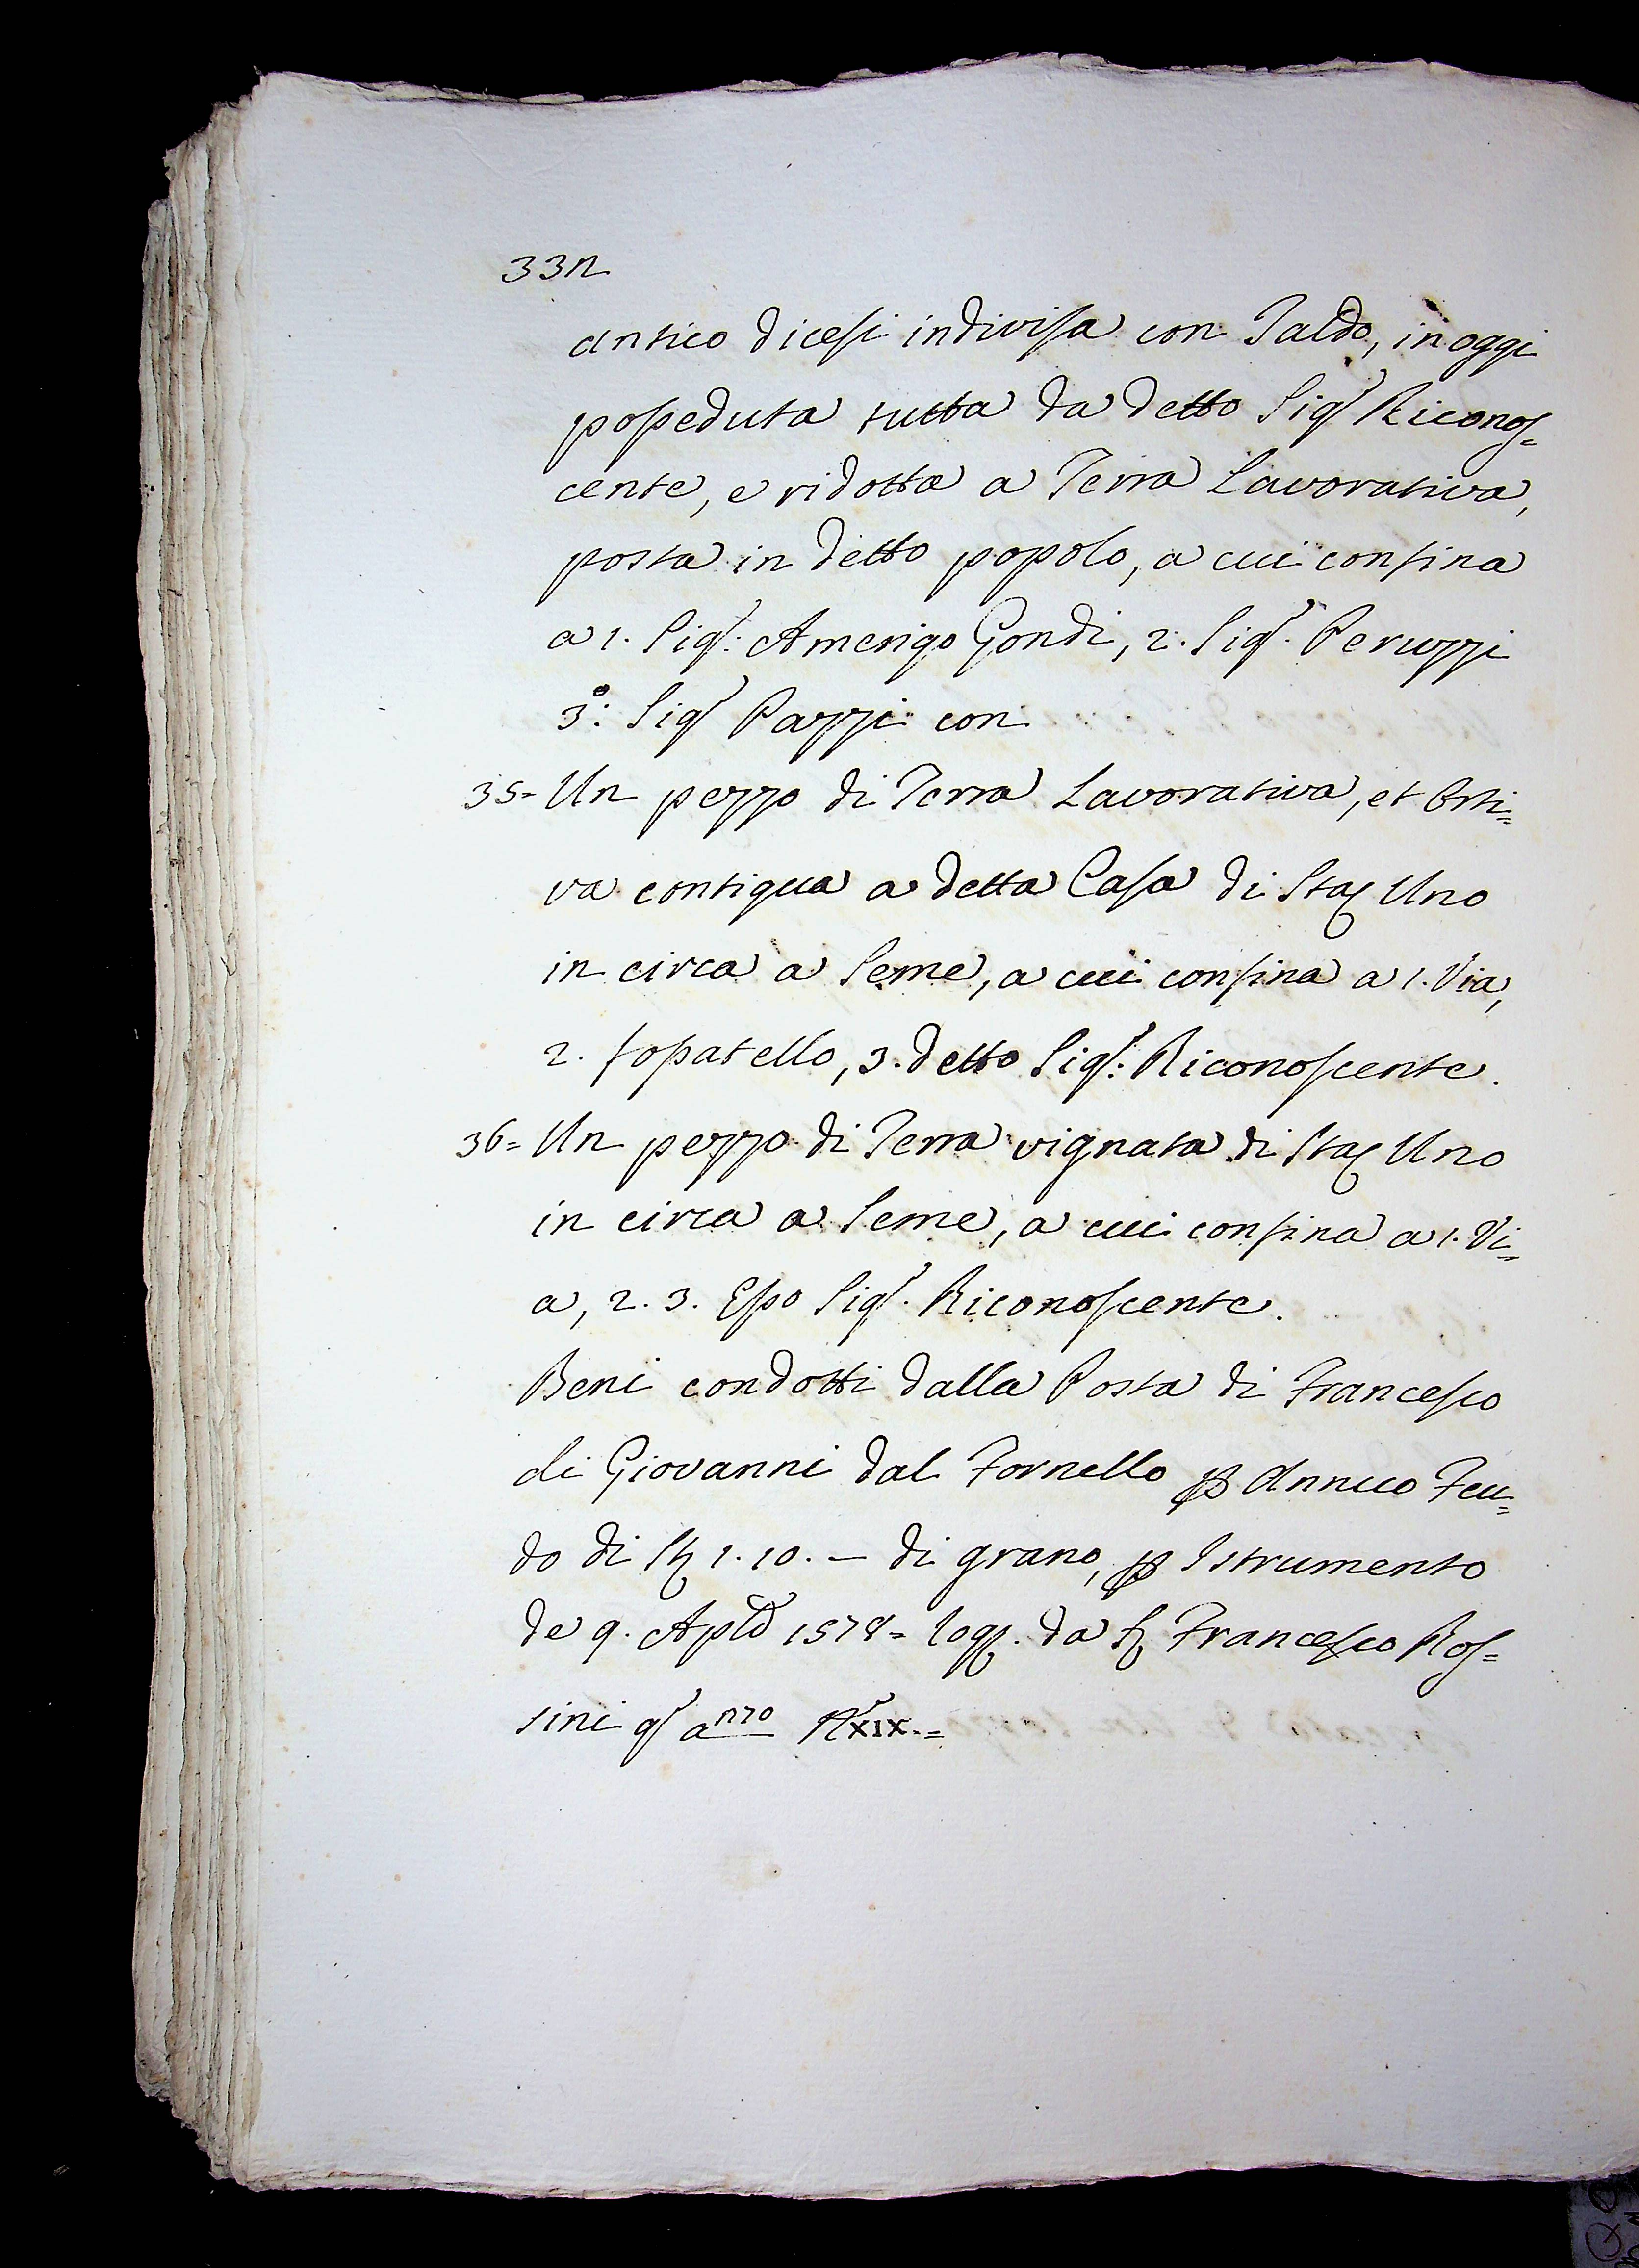 332
antico dicesi indivisa con Taldo, in oggi
posseduta tutta da detto Sig.r Riconos=
cente, e ridotta a Terra Lavorativa,
posta in detto popolo, a cui confina
a 1. Sig.r: Amerigo Gondi, 2. Sig.r. Peruzzi
3.°: Sig.r Pazzi con
35= Un pezzo di Terra Lavorativa, et Orti=
va contigua a detta Casa di Sta. Uno
in circa a Seme, a cui confina a 1. Via,
2. fossatello, 3. detto Sig.r: Riconoscente.
36= Un pezzo di Terra vignata di Sta. Uno
in circa a Seme, a cui confina a 1. Vi=
a, 2. 3. Esso Sig.r. Riconoscente.
Beni condotti dalla Posta di Francesco
di Giovanni dal Fornello p Annuo Feu=
do di St 1. 10. — di grano, p Istrumento
de 9. Aple 1578= rog. da S. Francesco Ros=
sini